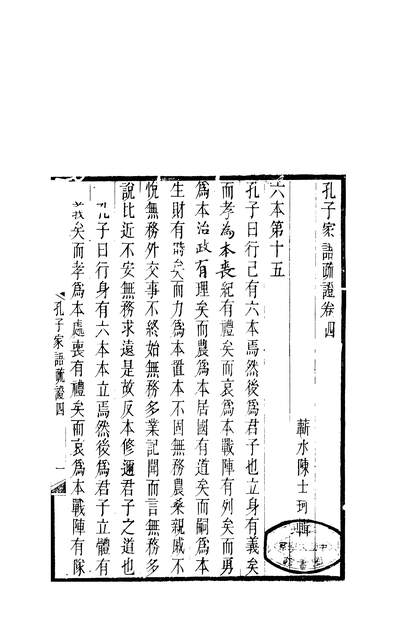 孔子家語疏證卷四
蘄水陳士珂輯
六本第十五
孔子曰行己有六本焉然後爲君子也立身有義矣
而孝爲本喪紀有禮矣而哀爲本戰陣有列矣而勇
爲本治政有理矣而農爲本居國有道矣而嗣爲本
生財有時矣而力爲本置本不固無務農桑親戚不
悅無務外交事不終始無務多業記聞而言無務多
說比近不安無務求遠是故反本修邇君子之道也
孔子曰行身有六本本立焉然後爲君子立體有
義矣而孝爲本處喪有禮矣而哀爲本戰陣有隊
孔子家語疏證四
一